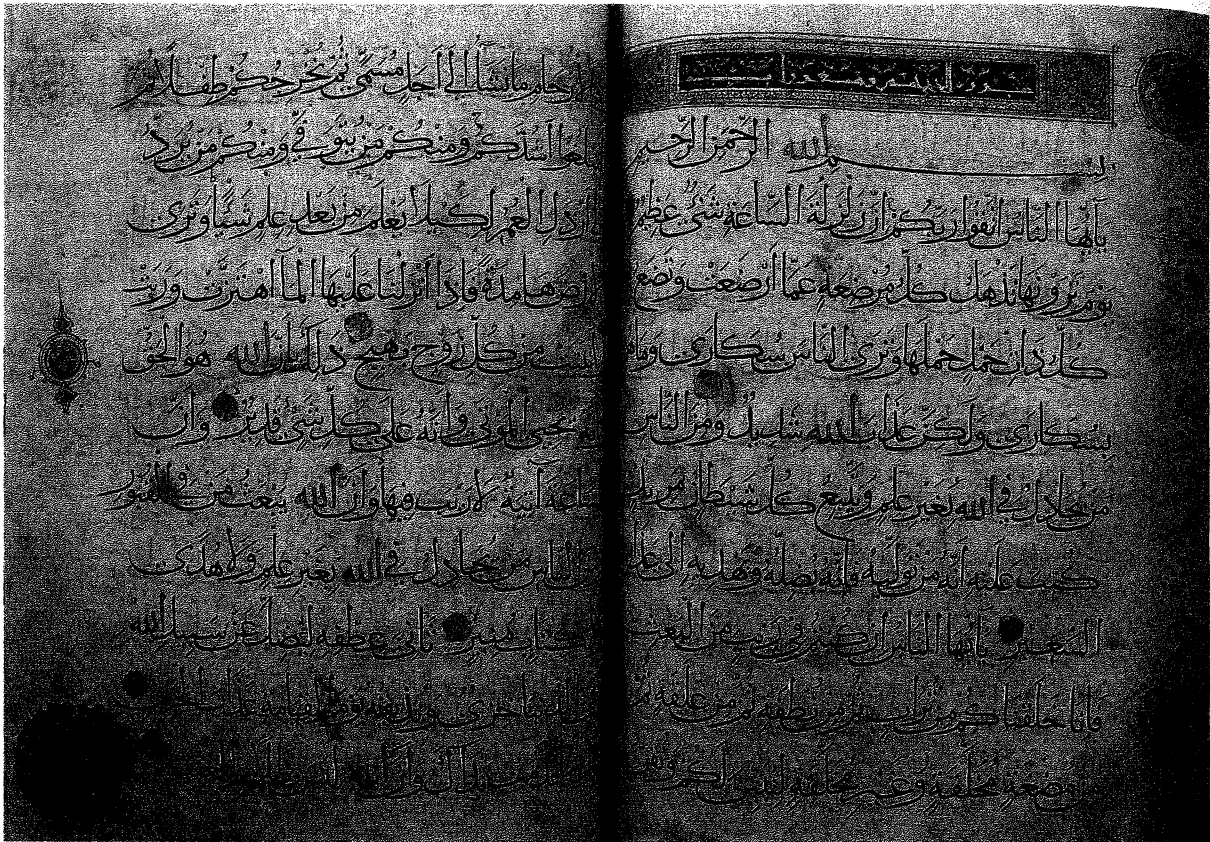 بسم الله الرحمن الرحيم
يأيها الناس اتقوا ربكم إن زلزلة الساعة شيء عظيم
يوم ترونها تذهل كل مرضعة عما أرضعت وتضع
كل ذات حمل حملها وترى الناس سكارى وما هم
بسكارى ولكن عذاب الله شديد ومن الناس
من يجادل في الله بغير علم ويتبع كل شيطان مريد
كتب عليه أنه من توليه فأنه يضله ويهديه إلى عذاب
السعير يأيها الناس إن كنتم في ريب من البعث
فإنا خلقناكم من تراب ثم من نطفة ثم من علقة ثم
من مضغة مخلقة وغير مخلقة لنبين لكم ونقر
الأرحام ما نشاء إلى أجل مسمى ثم نخرجكم طفلا ثم
لتبلغوا أشدكم ومنكم من يتوفى ومنكم من يرد
أرذل العمر لكيلا يعلم من بعد علم شيئا وترى
الأرض هامدة فإذا أنزلنا عليها الماء اهتزت وربت
وأنبتت من كل زوج بهيج ذلك بأن الله هو الحق
وأنه يحيي الموتى وأنه على كل شيء قدير وأن
الساعة آتية لا ريب فيها وأن الله يبعث من في القبور
ومن الناس من يجادل في الله بغير علم ولا هدى
ولا كتاب منير ثاني عطفه ليضل عن سبيل الله
في الدنيا خزي ونذيقه يوم القيامة عذاب الحريق
ذلك بما قدمت يداك وأن الله ليس بظلام للعبيد